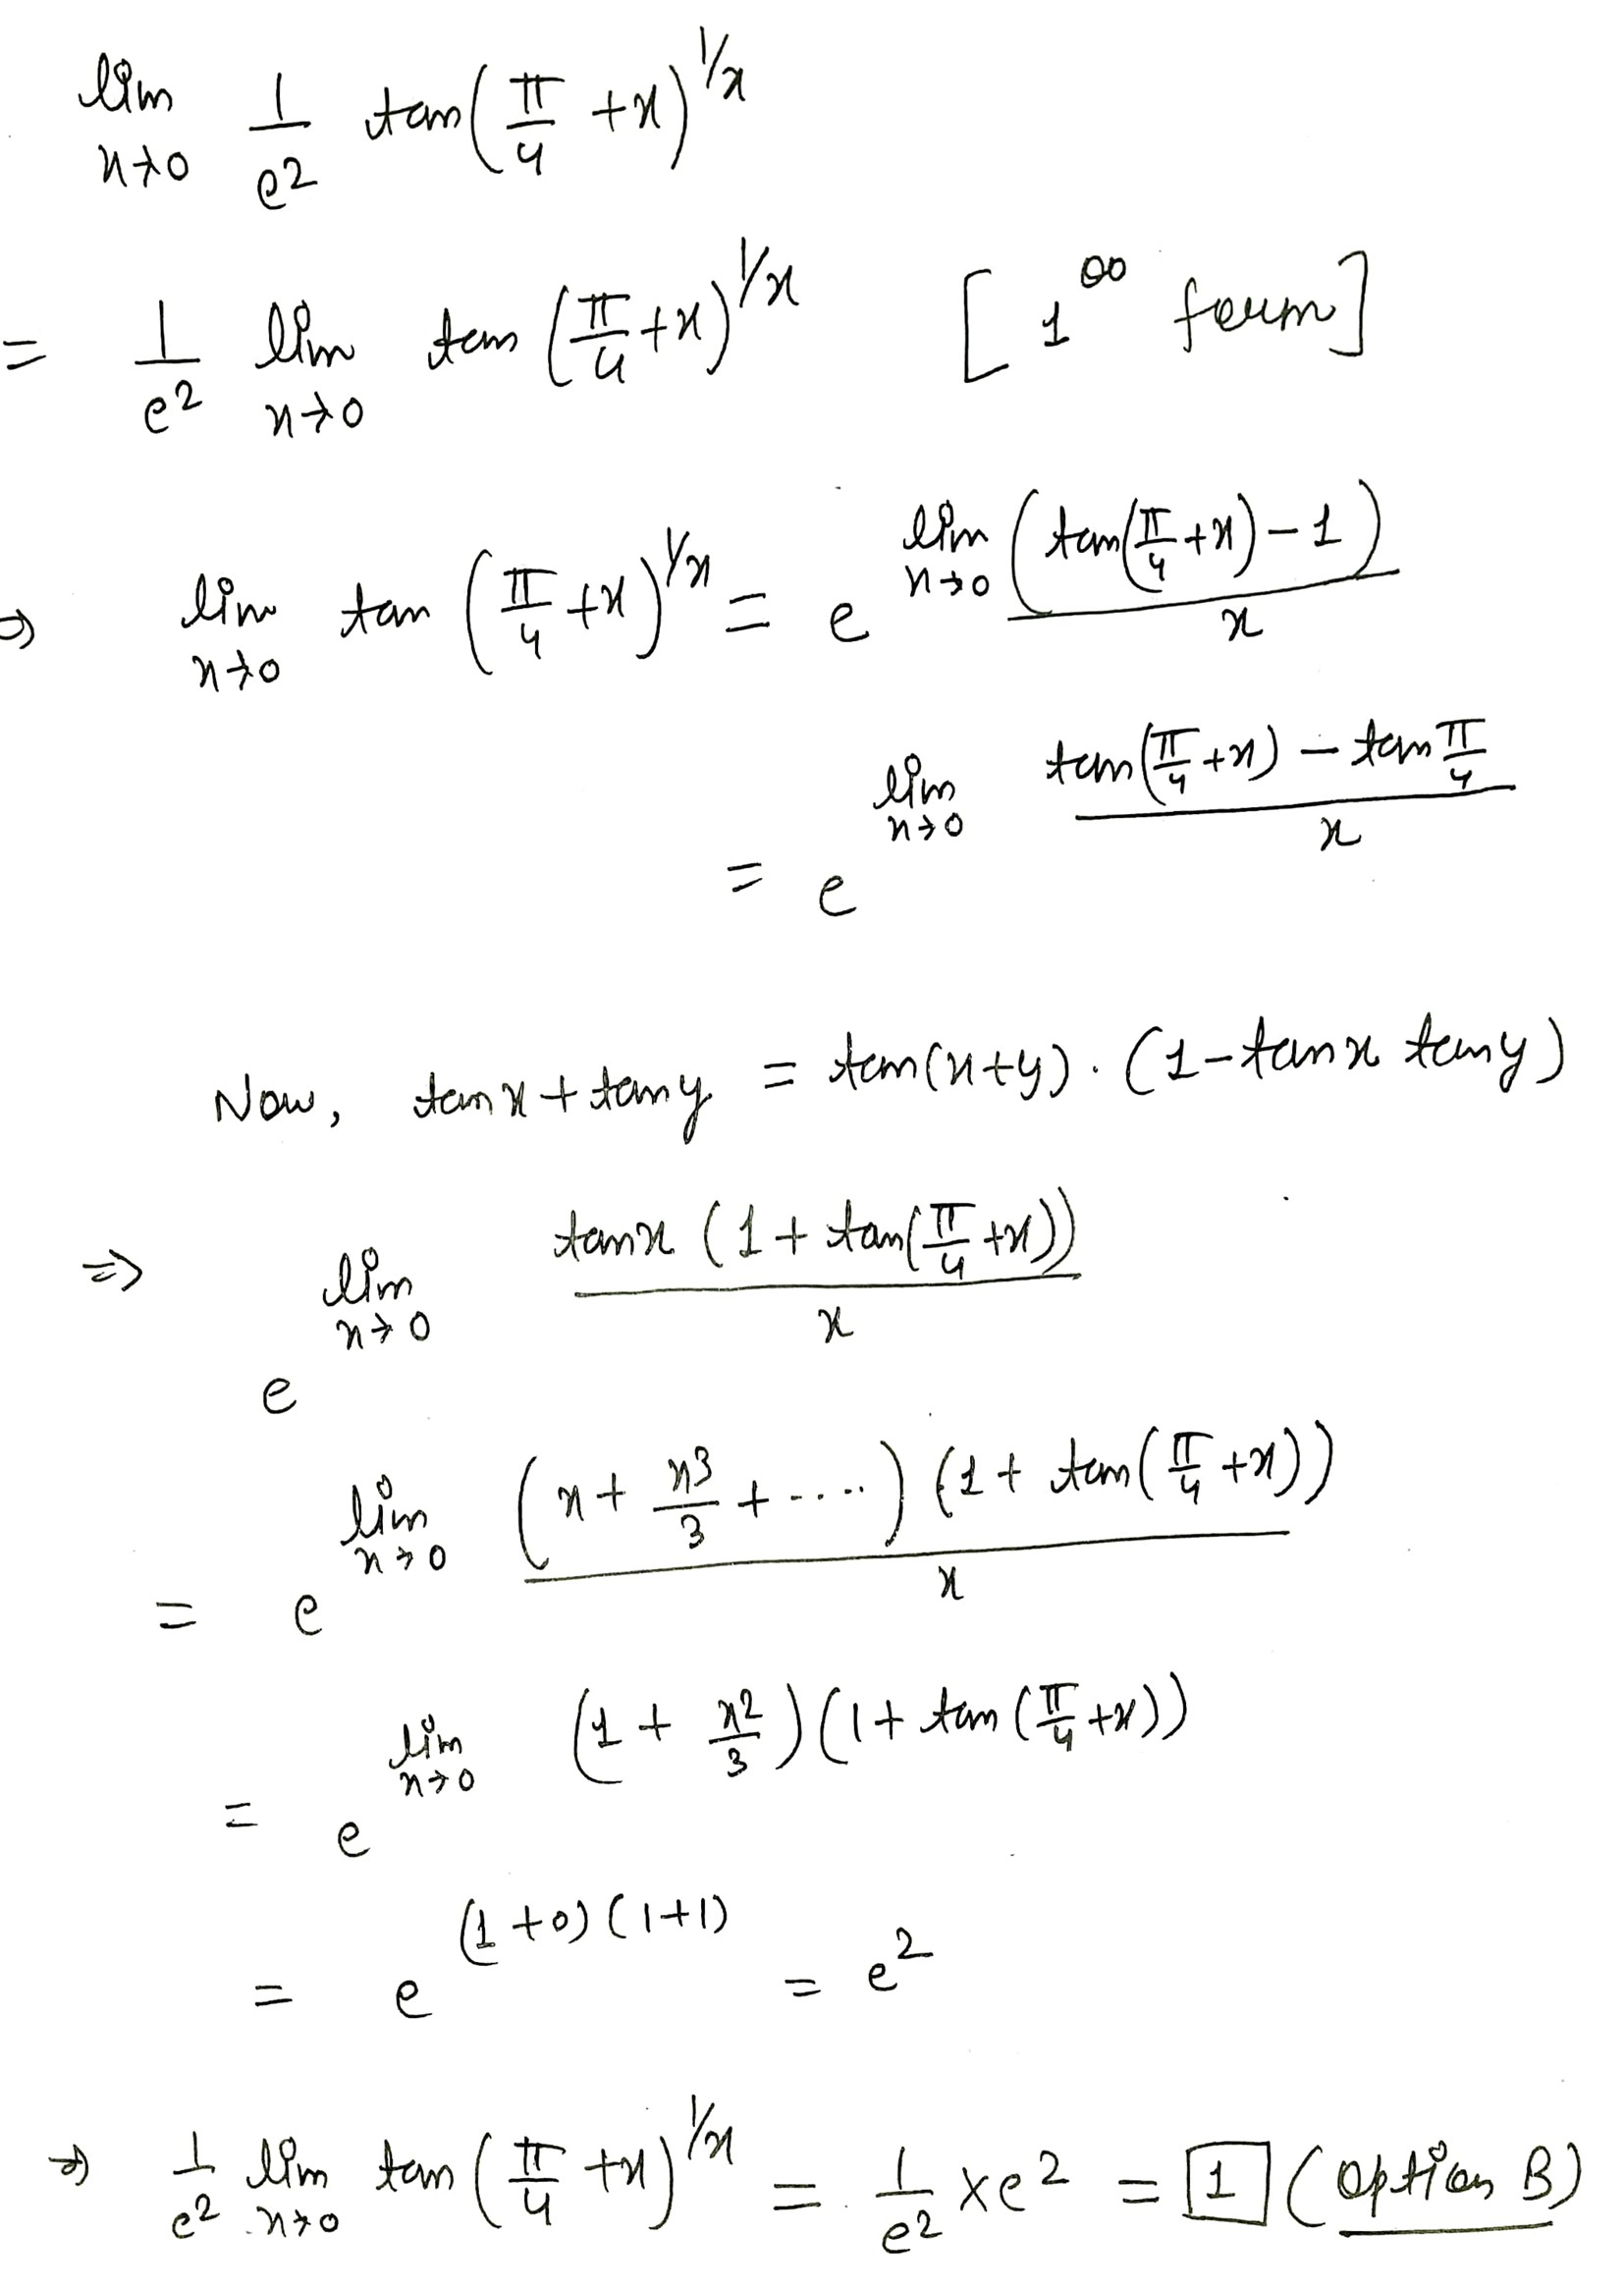 lim x→0 1/e² tan(π/4 + x)^1/x
= 1/e² lim x→0 tan(π/4 + x)^1/x [1^∞ form]
⇒ lim x→0 tan(π/4 + x)^1/x = e^lim x→0 (tan(π/4 + x) - 1)/x
= e^lim x→0 (tan(π/4 + x) - tan π/4)/x
Now, tan x + tan y = tan(x+y) . (1 - tan x tan y)
⇒ e^lim x→0 tan x (1 + tan(π/4 + x))/x
= e^lim x→0 (x + x³/3 + .....) (1 + tan(π/4 + x))/x
= e^lim x→0 (1 + x²/3)(1 + tan(π/4 + x))
= e^(1+0)(1+1) = e²
⇒ 1/e² lim x→0 tan(π/4 + x)^1/x = 1/e² × e² = 1 (Option B)